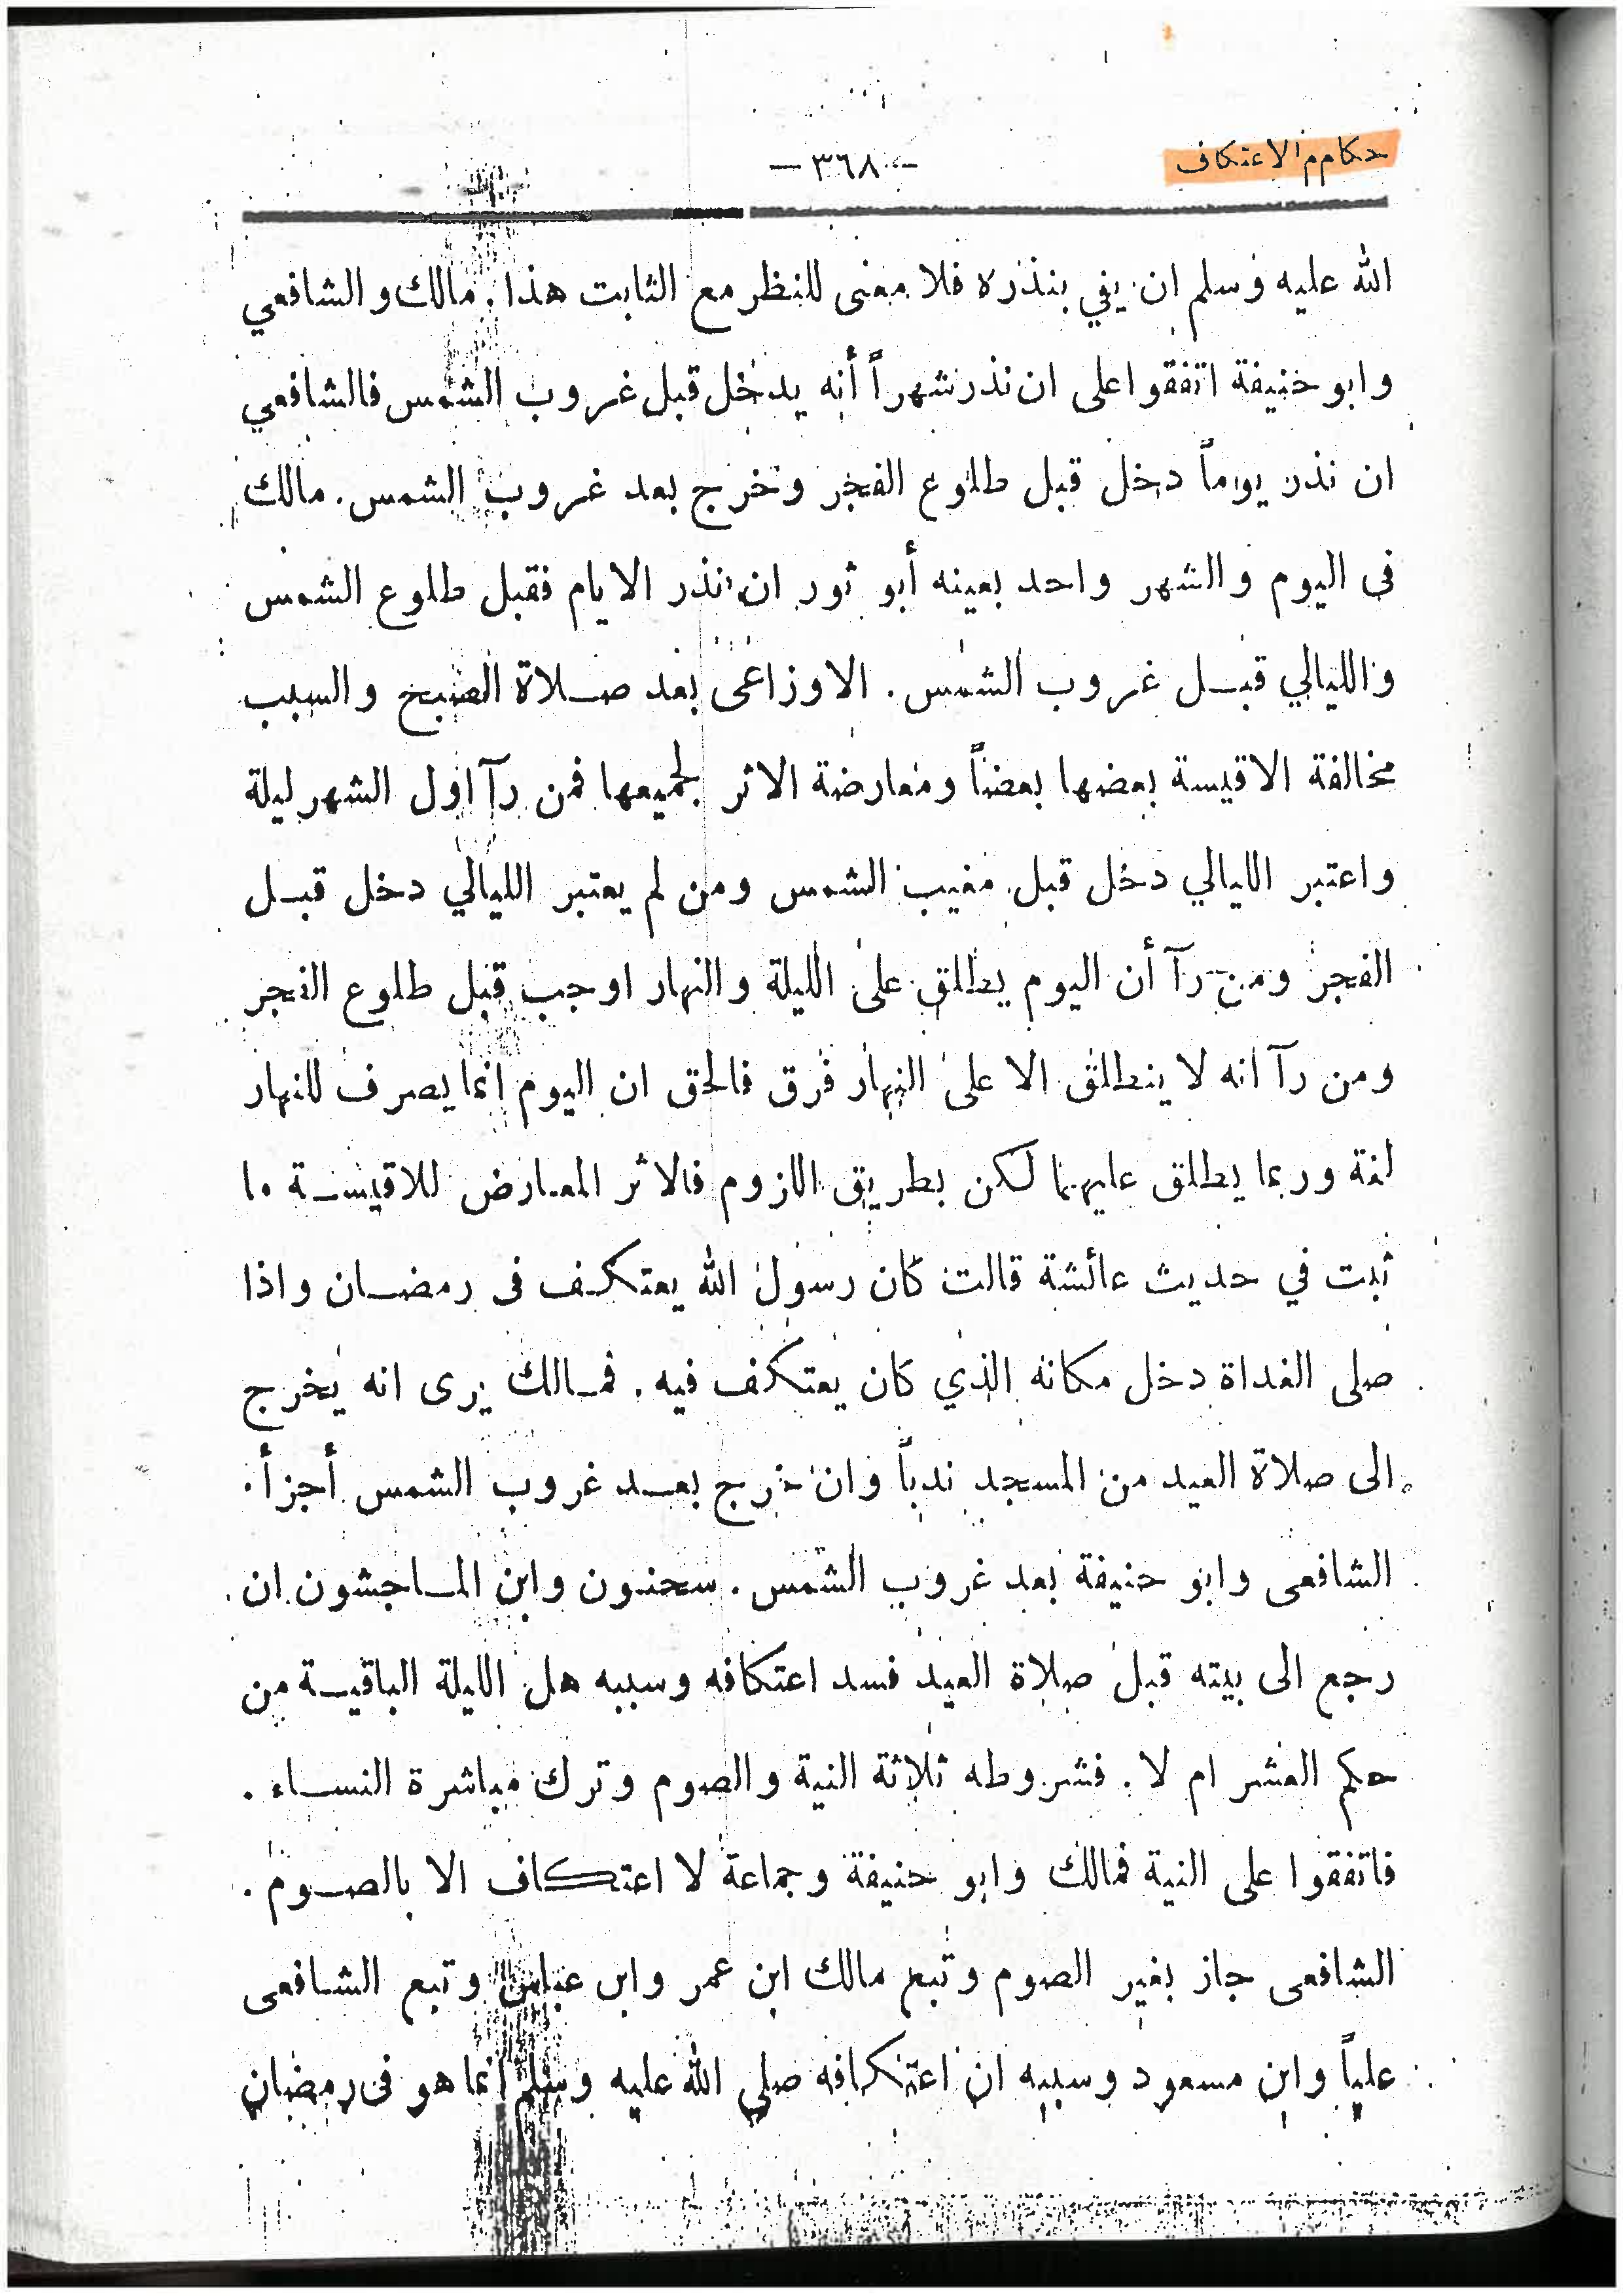 حكام م الاعتكاف
— ٣٦٨ —
الله عليه وسلم ان يفي بنذره فلا معنى للنظر مع الثابت هذا. مالك والشافعي
وابو حنيفة اتفقوا على ان نذر شهراً أنه يدخل قبل غروب الشمس فالشافعي
ان نذر يوماً دخل قبل طلوع الفجر وخرج بعد غروب الشمس. مالك
فى اليوم والشهر واحد بعينه أبو ثور ان نذر الايام فقبل طلوع الشمس
والليالي قبـل غروب الشمس. الاوزاعى بعد صـلاة الصبح والسبب
مخالفة الاقيسة بعضها بعضاً ومعارضة الاثر لجميعها فمن رآ اول الشهر ليلة
واعتبر الليالي دخل قبل مغيب الشمس ومن لم يعتبر الليالي دخل قبـل
الفجر ومن رآ أن اليوم يطلق على الليلة والنهار اوجب قبل طلوع الفجر
ومن رآ انه لا ينطلق الا على النهار فرق فالحق ان اليوم انما يصرف للنهار
لغة وربما يطلق عليهما لكن بطريق اللزوم فالاثر المعارض للاقيسـة ما
ثبت في حديث عائشة قالت كان رسول الله يعتكـف فى رمضـان واذا
صلى الغداة دخل مكانه الذي كان يعتكف فيه. فمـالك يرى انه يخرج
الى صلاة العيد من المسجد ندباً وان خرج بعـد غروب الشمس أجزأ.
الشافعى وابو حنيفة بعد غروب الشمس. سحنـون وابن المـاجشون ان
رجع الى بيته قبل صلاة العيد فسد اعتكافه وسببه هل الليلة الباقيـة من
حكم العشر ام لا. فشروطه ثلاثة النية والصوم وترك مباشرة النسـاء.
فاتفقوا على النية فمالك وابو حنيفة وجماعة لا اعتكاف الا بالصـوم.
الشافعى جاز بغير الصوم وتبع مالك ابن عمر وابن عباس وتبع الشـافعى
علياً وابن مسعود وسببه ان اعتكافه صلى الله عليه وسلم انما هو فى رمضان